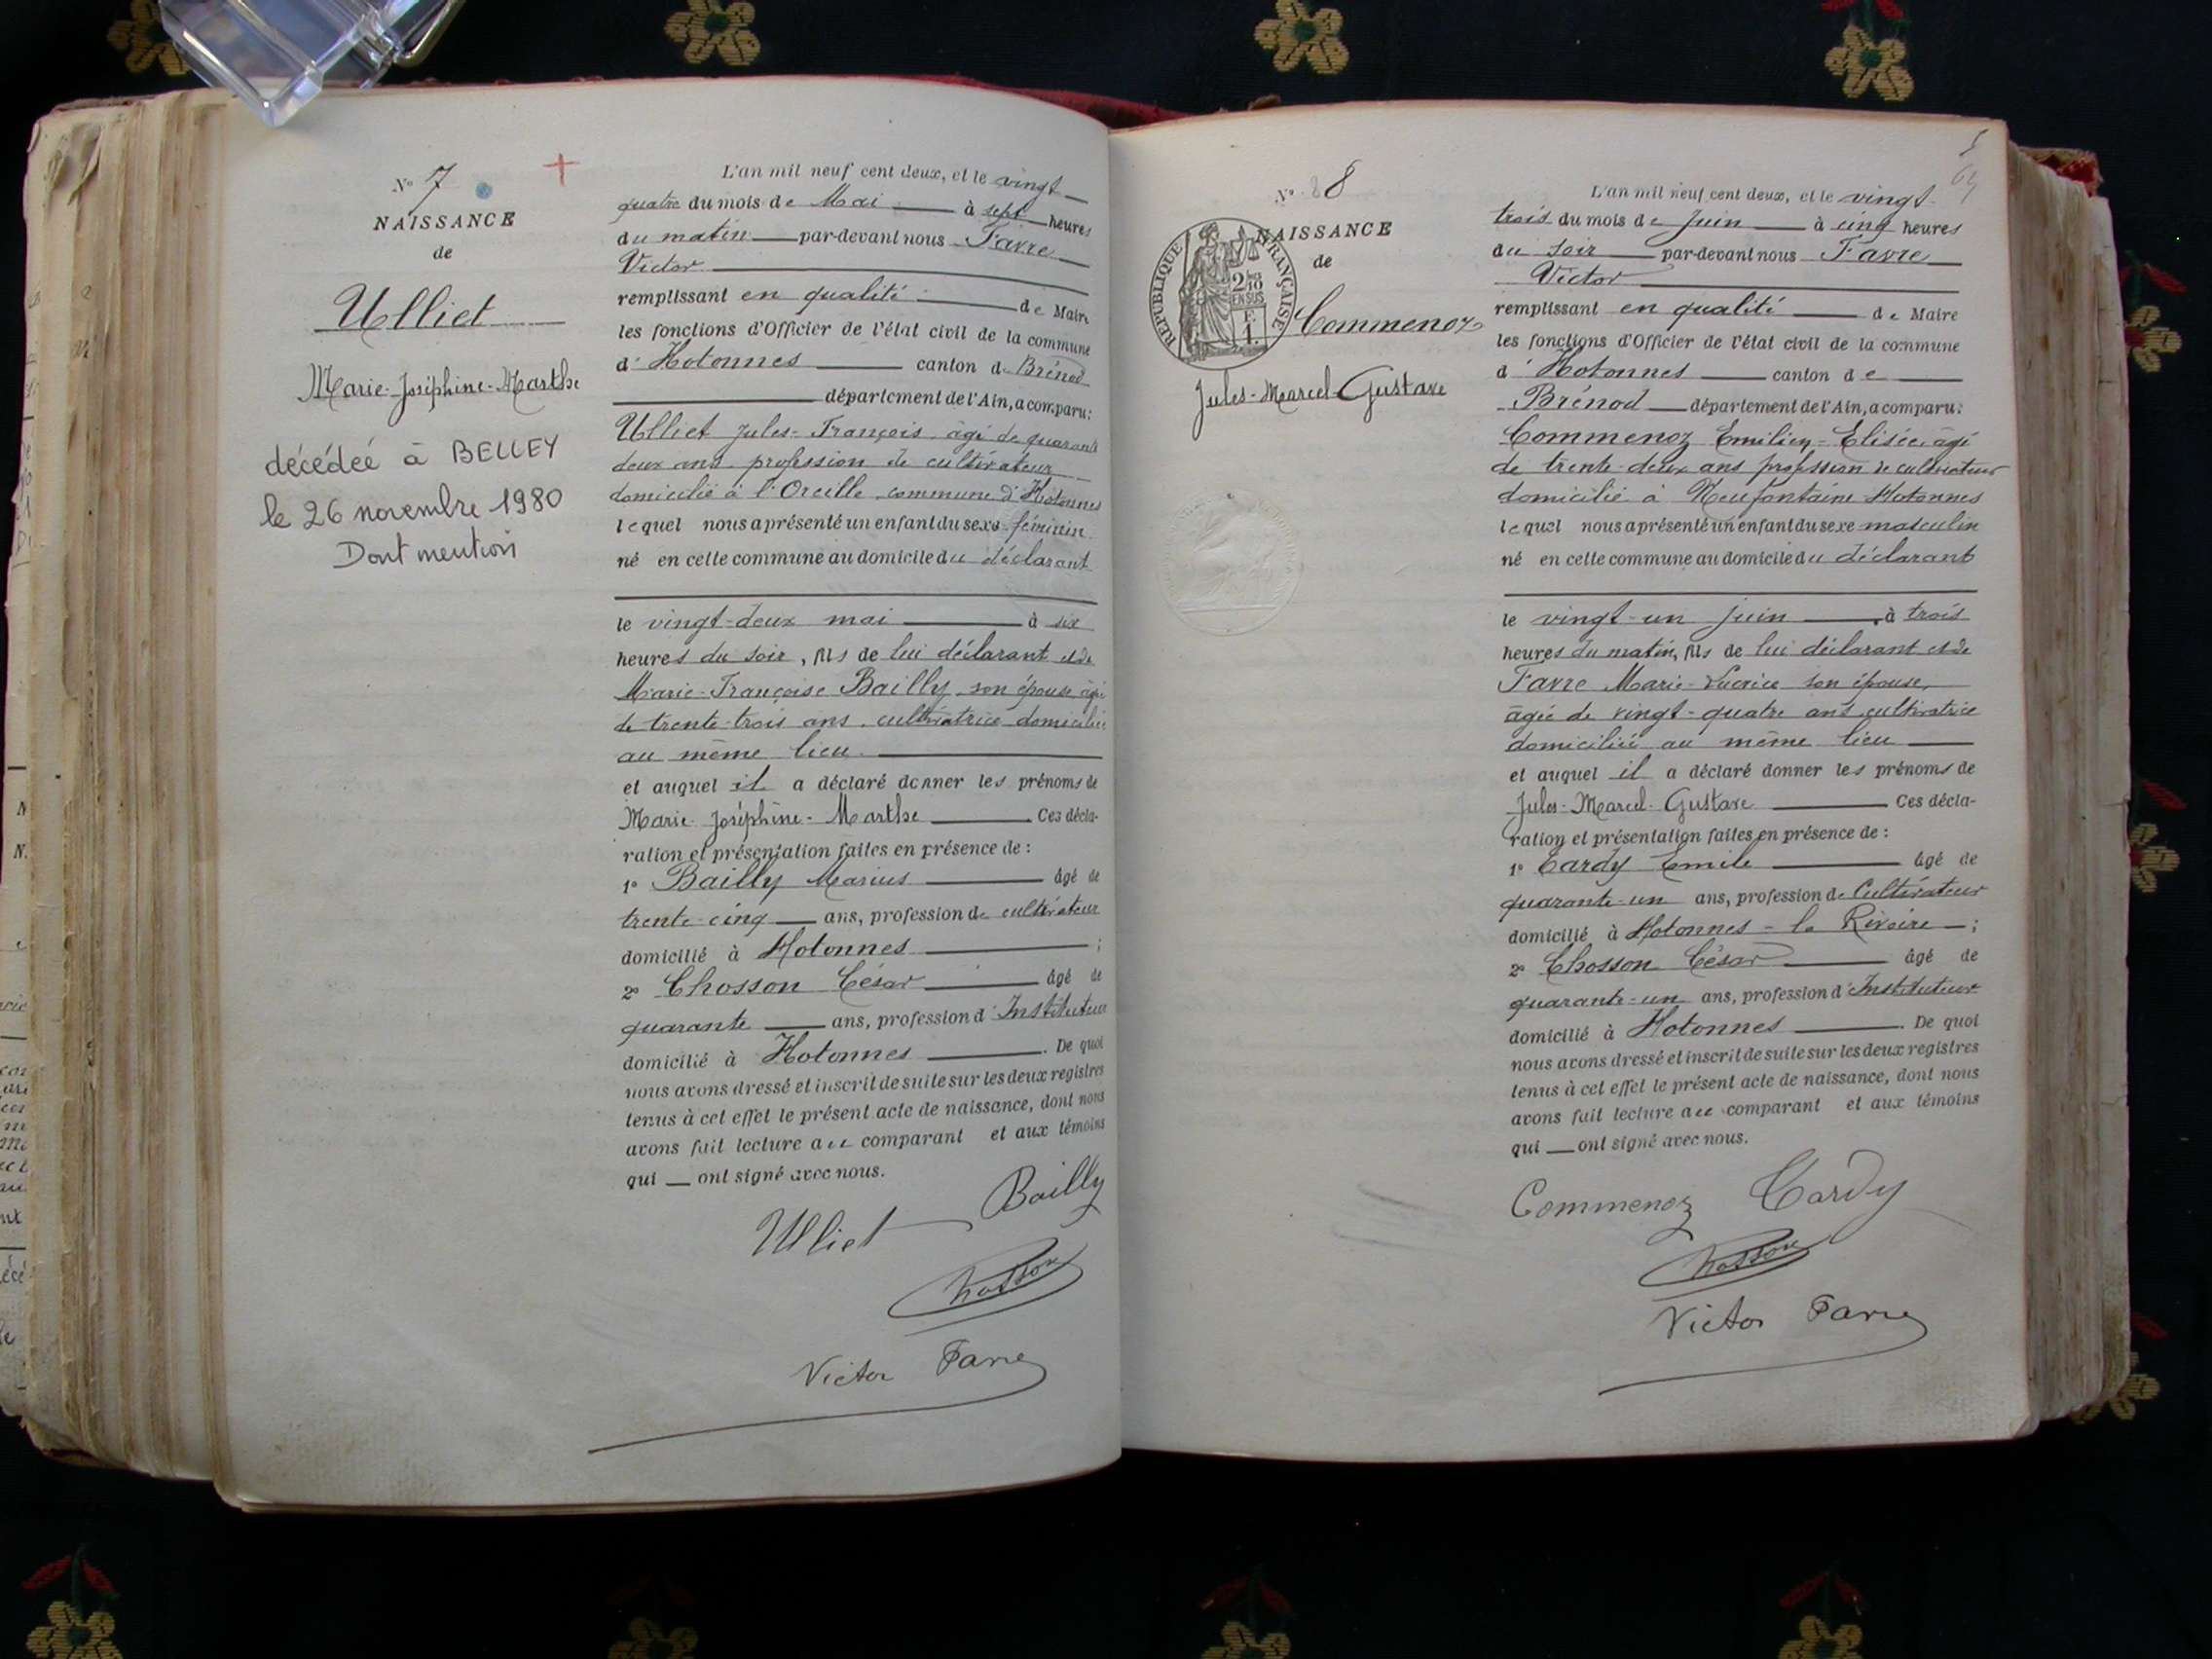 N° 7
NAISSANCE
de
Ulliet
Marie-Joséphine-Marthe
décédée à BELLEY
le 26 novembre 1980
Dont mention
L'an mil neuf cent deux, et le vingt
quatre du mois de Mai à sept heures
du matin par-devant nous Favre
Victor
remplissant en qualité de Maire
les fonctions d'Officier de l'état civil de la commune
d'Hotonnes canton de Brénod
département de l'Ain, a comparu:
Ulliet Jules-François âgé de quarante
deux ans profession de cultivateur
domicilié à l'Oreille, commune d'Hotonnes
lequel nous a présenté un enfant du sexe féminin
né en cette commune au domicile du déclarant
le vingt-deux mai à six
heures du soir, fils de lui déclarant et de
Marie-Françoise Bailly son épouse âgée
de trente-trois ans, cultivatrice domiciliée
au même lieu
et auquel il a déclaré donner les prénoms de
Marie-Joséphine-Marthe Ces décla-
ration et présentation faites en présence de :
1° Bailly Marius âgé de
trente-cinq ans, profession de cultivateur
domicilié à Hotonnes ;
2° Chosson César âgé de
quarante ans, profession d'Instituteur
domicilié à Hotonnes . De quoi
nous avons dressé et inscrit de suite sur les deux registres
tenus à cet effet le présent acte de naissance, dont nous
avons fait lecture au comparant et aux témoins
qui ont signé avec nous.
Bailly
Ulliet
Chosson
Victor Favre
5
N° 8
NAISSANCE
de
RÉPUBLIQUE FRANÇAISE
2/10
EN SUS
F.
1.
Commenoz
Jules-Marcel-Gustave
L'an mil neuf cent deux, et le vingt
trois du mois de Juin à cinq heures
du soir par-devant nous Favre
Victor
remplissant en qualité de Maire
les fonctions d'Officier de l'état civil de la commune
d'Hotonnes canton de
Brénod département de l'Ain, a comparu:
Commenoz Emilien-Elisée, âgé
de trente-deux ans profession de cultivateur
domicilié à Neufontaine Hotonnes
lequel nous a présenté un enfant du sexe masculin
né en cette commune au domicile du déclarant
le vingt-un juin à trois
heures du matin, fils de lui déclarant et de
Favre Marie-Lucrèce son épouse,
âgée de vingt-quatre ans cultivatrice
domiciliée au même lieu
et auquel il a déclaré donner les prénoms de
Jules-Marcel-Gustave Ces décla-
ration et présentation faites en présence de :
1° Cardy Emile âgé de
quarante-un ans, profession de Cultivateur
domicilié à Hotonnes - la Rivoire ;
2° Chosson César âgé de
quarante-un ans, profession d'Instituteur
domicilié à Hotonnes . De quoi
nous avons dressé et inscrit de suite sur les deux registres
tenus à cet effet le présent acte de naissance, dont nous
avons fait lecture au comparant et aux témoins
qui ont signé avec nous.
Commenoz Cardy
Chosson
Victor Favre